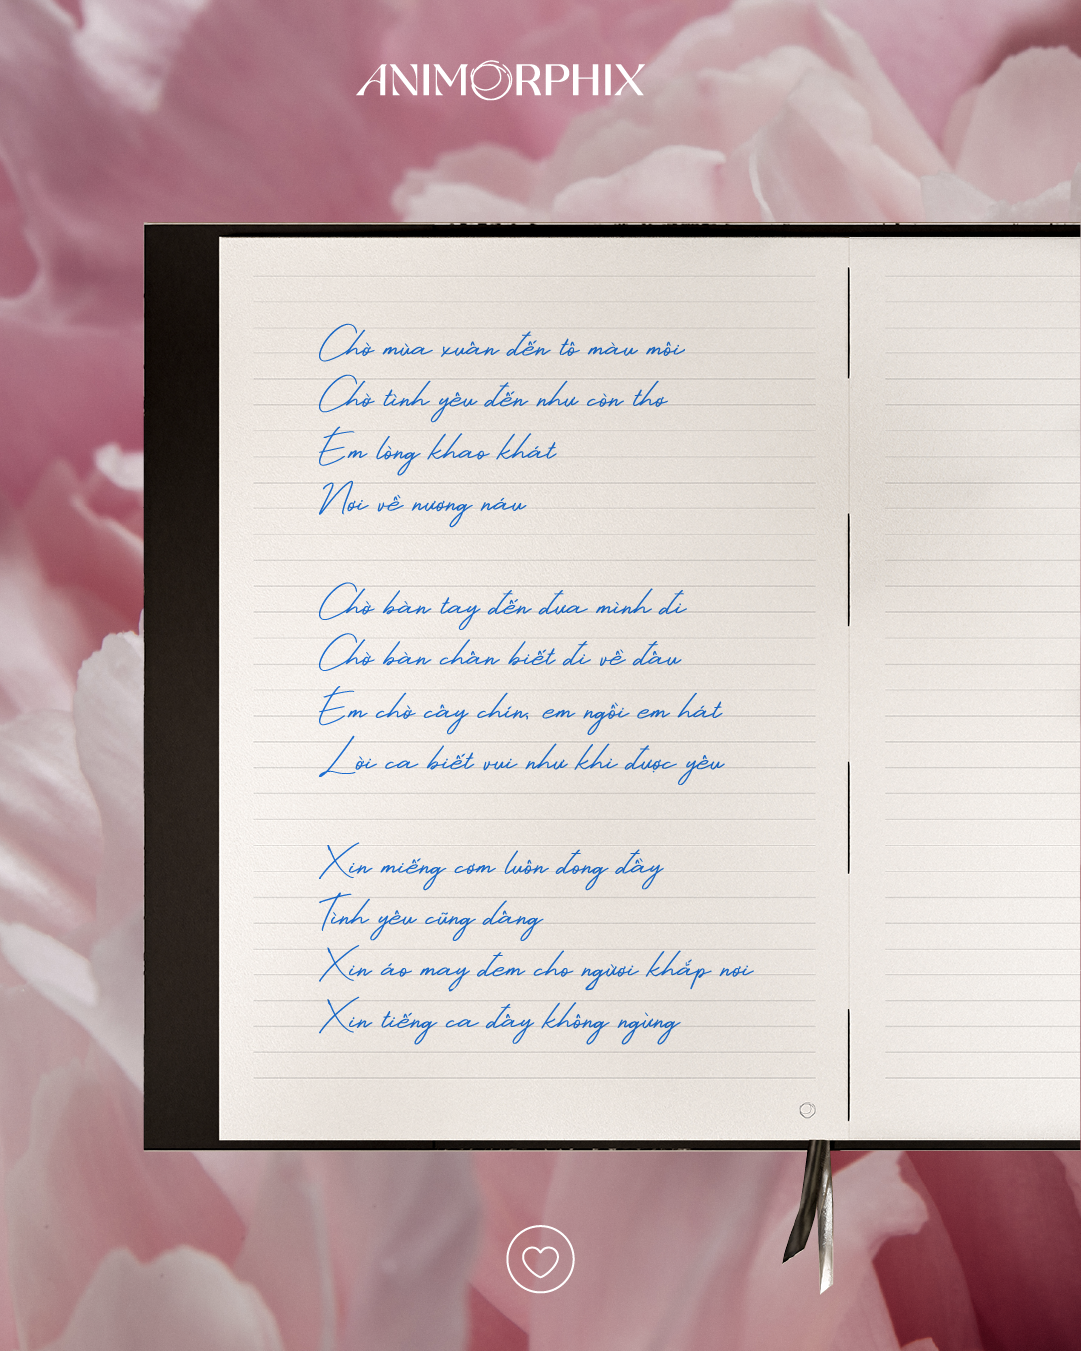 ANIMORPHIX
Chờ mùa xuân đến tô màu môi
Chờ tình yêu đến như còn thơ
Em lòng khao khát
Nơi về nương náu
Chờ bàn tay đến đưa mình đi
Chờ bàn chân biết đi về đâu
Em chờ cây chín, em ngồi em hát
Lời ca biết vui như khi được yêu
Xin miếng cơm luôn đong đầy
Tình yêu cũng dâng
Xin áo may đem cho người khắp nơi
Xin tiếng ca đây không ngừng